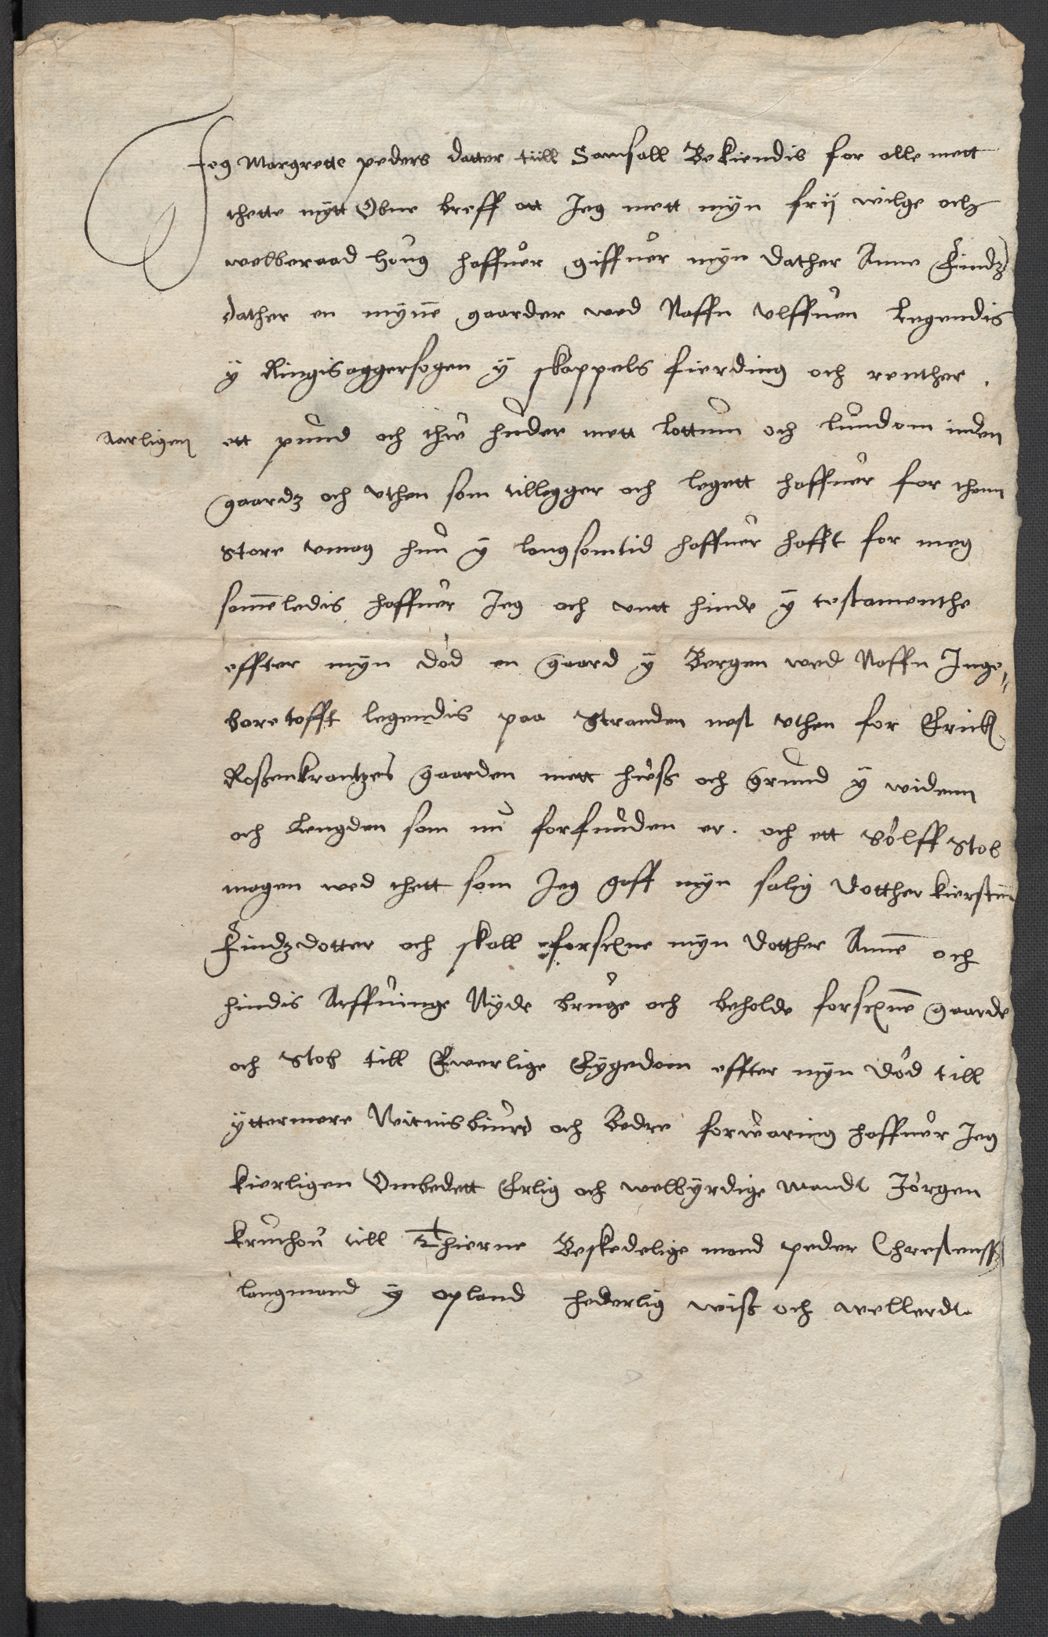 Jeg Margrette peders datter till Samsall Bekiendis for alle mett
thette mytt Obne breff att Jeg mett myn frij wilge och
welberaad houg haffuer giffuer myn dather Anne Findz
dather en mynne gaarder wed Naffn Vlffuen Legendis
y Ringisaggersogen y skappels fierding och renther
Aarligen ett pund och thw huder mett Lottum och Lundom inden
gaardz och vthen som tillegger och legett haffuer for thenn
Store vmag hun y langsomtid haffuer hafft for meg
sammeledis haffuer Jeg och untt hinde y testamenthe
effter myn død en gaard y Bergen wed Naffn Inge-
bore tofft legendis paa Stranden nest vthen for Erick
Rossenkrantzes gaarden mett huss och Grund y widenn
och Lengden som nu forfunden er. och ett Sølff Stob
magen wed thett som Jeg gaff myn salig dotther kierstinn
Findzdotter och skall forscne myn dotther Anne och
hindis Arffuinge Nyde bruge och beholde forscne gaarde
och Stob till Ewerlige Eygedom effter myn død till
yttermere Witnisbiurd och Bedre forwaring haffuer Jeg
kierligen Ombedett Erlig och welbyrdige mandt Jørgen
kruchou till Thierne Beskedelige mand peder Chrestenss
langmand y opland hederlig wiss och wellerdt